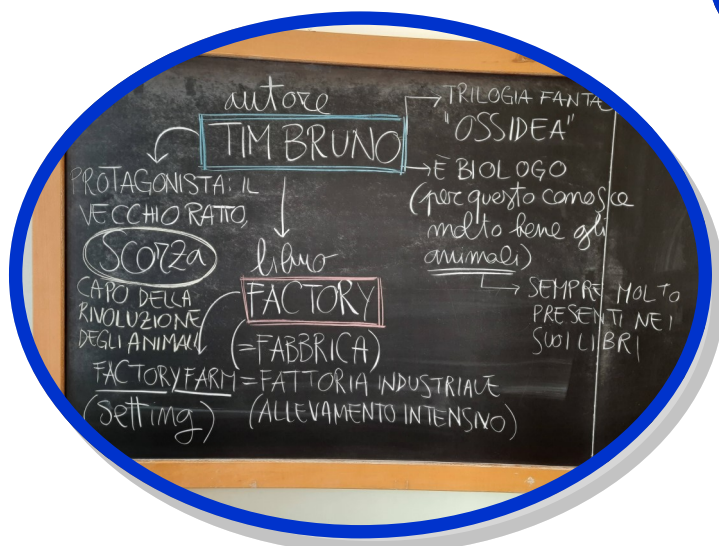 autore
TIM BRUNO
TRILOGIA FANTA
"OSSIDEA"
È BIOLOGO
(per questo conosce
molto bene gli
animali)
SEMPRE MOLTO
PRESENTI NEI
SUOI LIBRI
PROTAGONISTA: IL
VECCHIO RATTO,
SCORZA
CAPO DELLA
RIVOLUZIONE
DEGLI ANIMALI
libro
FACTORY
(=FABBRICA)
FACTORY FARM = FATTORIA INDUSTRIALE
(setting) (ALLEVAMENTO INTENSIVO)